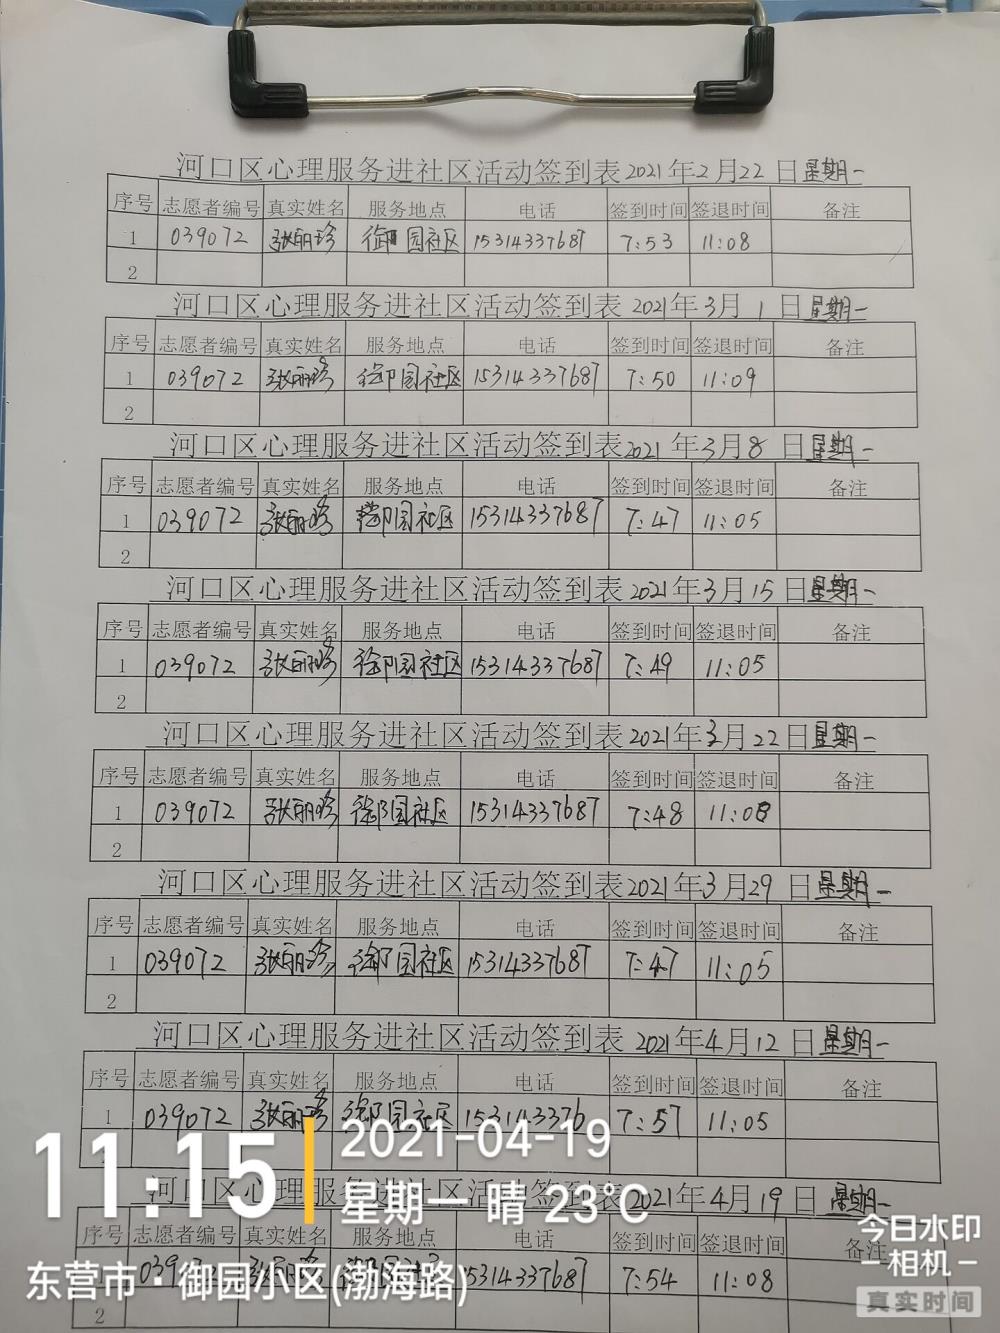 河口区心理服务进社区活动签到表2021年2月22日星期一
序号 志愿者编号 真实姓名 服务地点 电话 签到时间 签退时间 备注
1 039072 张丽珍 御园社区 15314337687 7:53 11:08
2
河口区心理服务进社区活动签到表2021年3月1日星期一
序号 志愿者编号 真实姓名 服务地点 电话 签到时间 签退时间 备注
1 039072 张丽珍 御园社区 15314337687 7:50 11:09
2
河口区心理服务进社区活动签到表2021年3月8日星期一
序号 志愿者编号 真实姓名 服务地点 电话 签到时间 签退时间 备注
1 039072 张丽珍 御园社区 15314337687 7:47 11:05
2
河口区心理服务进社区活动签到表2021年3月15日星期一
序号 志愿者编号 真实姓名 服务地点 电话 签到时间 签退时间 备注
1 039072 张丽珍 御园社区 15314337687 7:49 11:05
2
河口区心理服务进社区活动签到表2021年3月22日星期一
序号 志愿者编号 真实姓名 服务地点 电话 签到时间 签退时间 备注
1 039072 张丽珍 御园社区 15314337687 7:48 11:08
2
河口区心理服务进社区活动签到表2021年3月29日星期一
序号 志愿者编号 真实姓名 服务地点 电话 签到时间 签退时间 备注
1 039072 张丽珍 御园社区 15314337687 7:47 11:05
2
河口区心理服务进社区活动签到表2021年4月12日星期一
序号 志愿者编号 真实姓名 服务地点 电话 签到时间 签退时间 备注
1 039072 张丽珍 御园社区 7:57 11:05
2
河口区心理服务进社区活动签到表2021年4月19日星期一
序号 志愿者编号 真实姓名 服务地点 电话 签到时间 签退时间 备注
1 039072 张丽珍 御园社区 15314337687 7:54 11:08
2
11:15
2021-04-19
星期一 晴 23℃
东营市·御园小区(渤海路)
今日水印
-相机-
真实时间